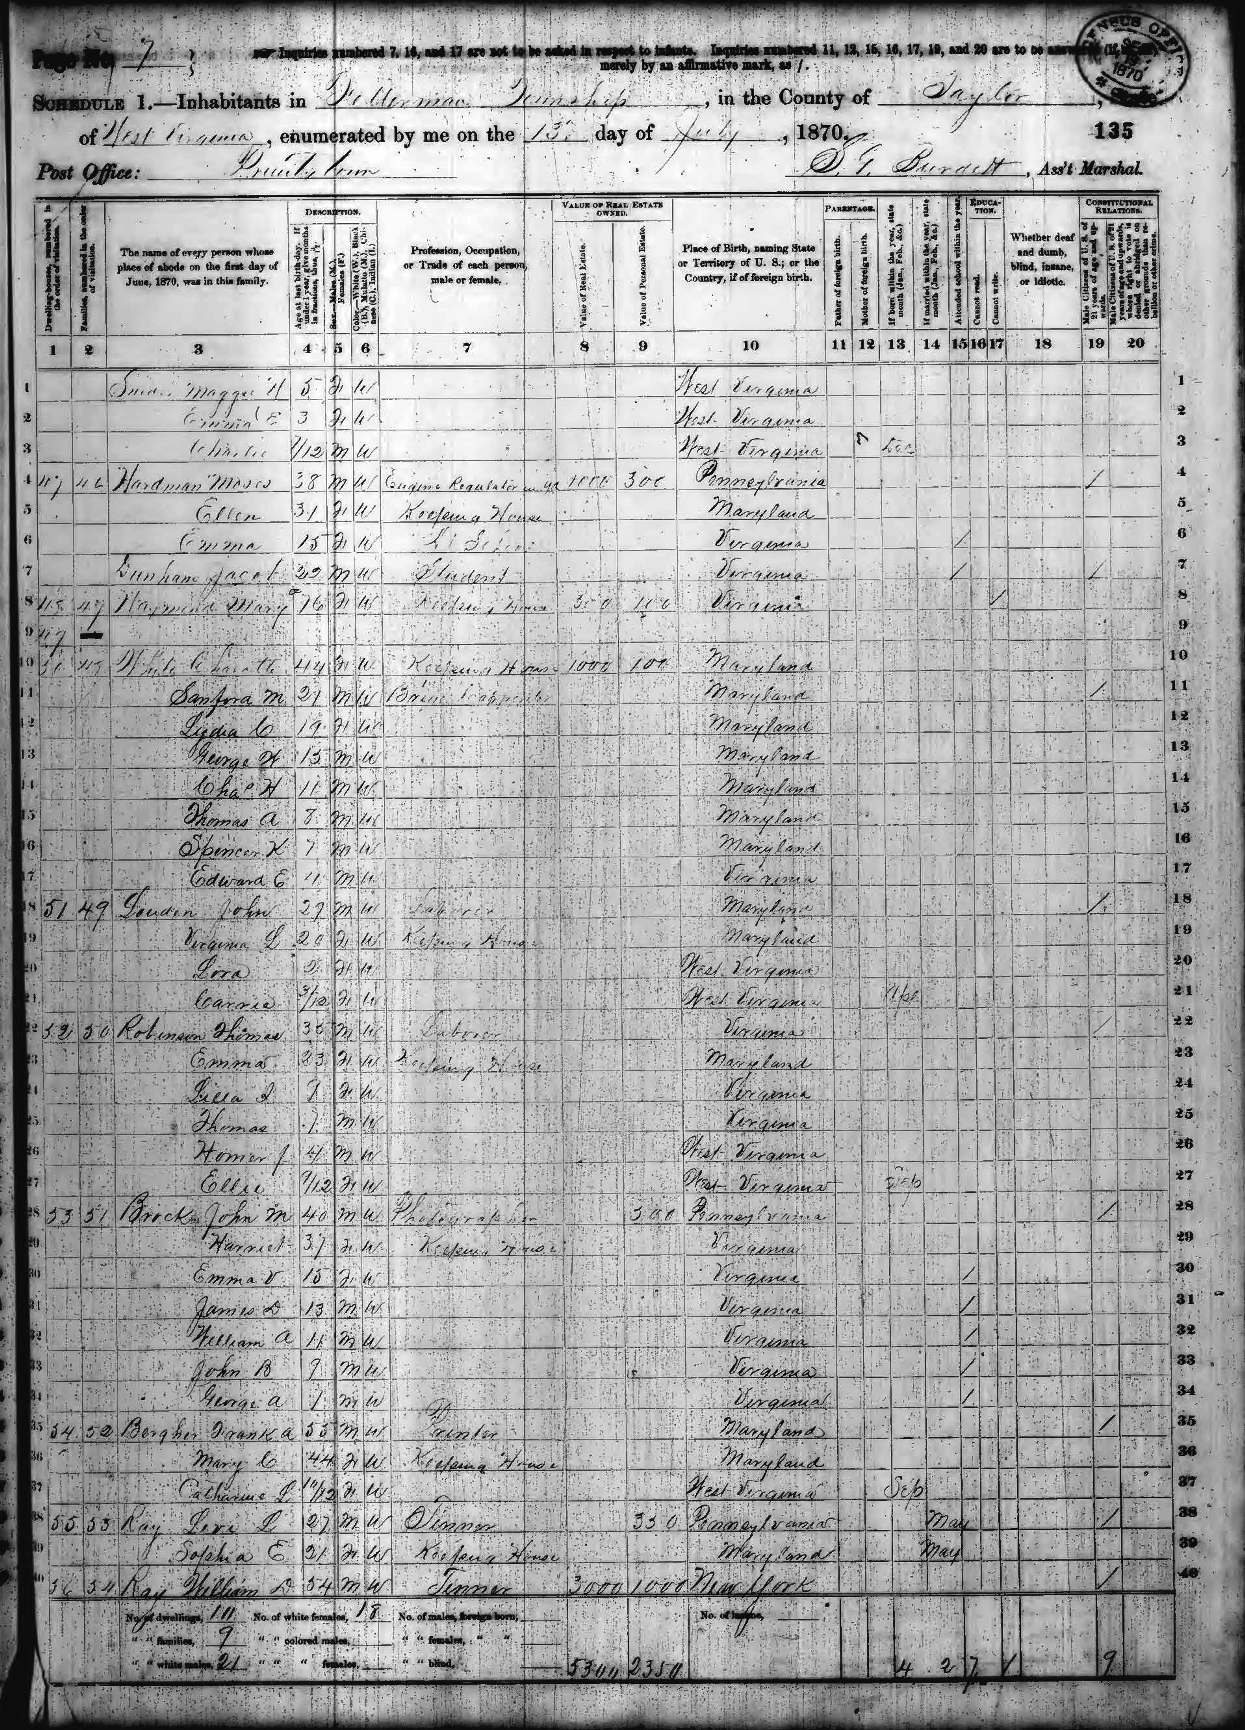 Page No. 7
Inquiries numbered 7, 16, and 17 are not to be asked in respect to infants. Inquiries numbered 11, 12, 15, 16, 17, 19, and 20 are to be answered
merely by an affirmative mark, as /.
CENSUS OFFICE 1870
SCHEDULE 1.—Inhabitants in Fetterman Township, in the County of Taylor,
of West Virginia, enumerated by me on the 13 day of July, 1870. 135
Post Office: Pruntytown
Burdett, Ass't Marshal.
Dwelling-houses, numbered in the order of visitation.
Families, numbered in the order of visitation.
The name of every person whose place of abode on the first day of June, 1870, was in this family.
DESCRIPTION.
Age at last birth-day. If under 1 year, give months in fractions, thus,
Sex.—Males (M.), Females (F.)
Color.—White (W.), Black (B.), Mulatto (M.), Chinese (C.), Indian (I.)
Profession, Occupation, or Trade of each person, male or female.
VALUE OF REAL ESTATE OWNED.
Value of Real Estate.
Value of Personal Estate.
Place of Birth, naming State or Territory of U. S.; or the Country, if of foreign birth.
PARENTAGE.
Father of foreign birth.
Mother of foreign birth.
If born within the year, state month (Jan., Feb., &c.)
If married within the year, state month (Jan., Feb., &c.)
EDUCATION.
Attended school within the year.
Cannot read.
Cannot write.
Whether deaf and dumb, blind, insane, or idiotic.
CONSTITUTIONAL RELATIONS.
Male Citizens of U. S. of 21 years of age and upwards.
Male Citizens of U. S. of 21 years of age and upwards, whose right to vote is denied or abridged on other grounds than rebellion or other crime.
1 2 3 4 5 6 7 8 9 10 11 12 13 14 15 16 17 18 19 20
1 Maggie H 5 F W West Virginia 1
2 Emma E 3 F W West Virginia 2
3 Charlie /12 M W West Virginia Dec 3
4 47 46 Hardman Moses 38 M W Engine Regulator 1000 300 Pennsylvania / 4
5 Ellen 31 F W Keeping House Maryland 5
6 Emma 15 F W Virginia / 6
7 Jacob 22 M W Student Virginia / / 7
8 48 47 Haymond Mary 76 F W Keeping House 300 100 Virginia / 8
9 49 9
10 50 48 44 F W Keeping House 1000 100 Maryland 10
11 Sanford M 21 M W Carpenter Maryland / 11
12 Lydia C 19 F W Maryland 12
13 George H 15 M W Maryland 13
14 Chas H 11 M W Maryland 14
15 Thomas A 8 M W Maryland 15
16 Spencer K 7 M W Maryland 16
17 Edward E 4 M W Virginia 17
18 51 49 Louden John 27 M W Laborer Maryland / 18
19 Virginia L 20 F W Keeping House Maryland 19
20 Lora 2 F W West Virginia 20
21 Carrie 3/12 F W West Virginia Apl 21
22 52 50 Robinson Thomas 35 M W Laborer Virginia / 22
23 Emma 23 F W Keeping House Maryland 23
24 Lilla 8 F W Virginia 24
25 Thomas 7 M W Virginia 25
26 Homer J 4 M W West Virginia 26
27 Ellie 9/12 F W West Virginia Sep 27
28 53 51 Brock John M 40 M W Photographer 300 Pennsylvania / 28
29 Harriet 37 F W Keeping House Virginia 29
30 Emma V 15 F W Virginia / 30
31 James D 13 M W Virginia / 31
32 William A 11 M W Virginia / 32
33 John B 9 M W Virginia / 33
34 George A 7 M W Virginia / 34
35 54 52 Bergher Frank A 55 M W Printer Maryland / 35
36 Mary C 44 F W Keeping House Maryland 36
37 Catharine L 10/12 F W West Virginia Sep 37
38 55 53 Ray Levi L 27 M W Tinner 350 Pennsylvania May / 38
39 Sophia E 21 F W Keeping House Maryland May 39
40 56 54 Ray William D 54 M W Tinner 3000 1000 New York / 40
No. of dwellings, 10 No. of white females, 18 No. of males, foreign born, No. of insane,
" " families, 9 " " colored males, " " females, " "
" " white males, 21 " " " females, " " blind, 5300 2350 4 2 7 1 9